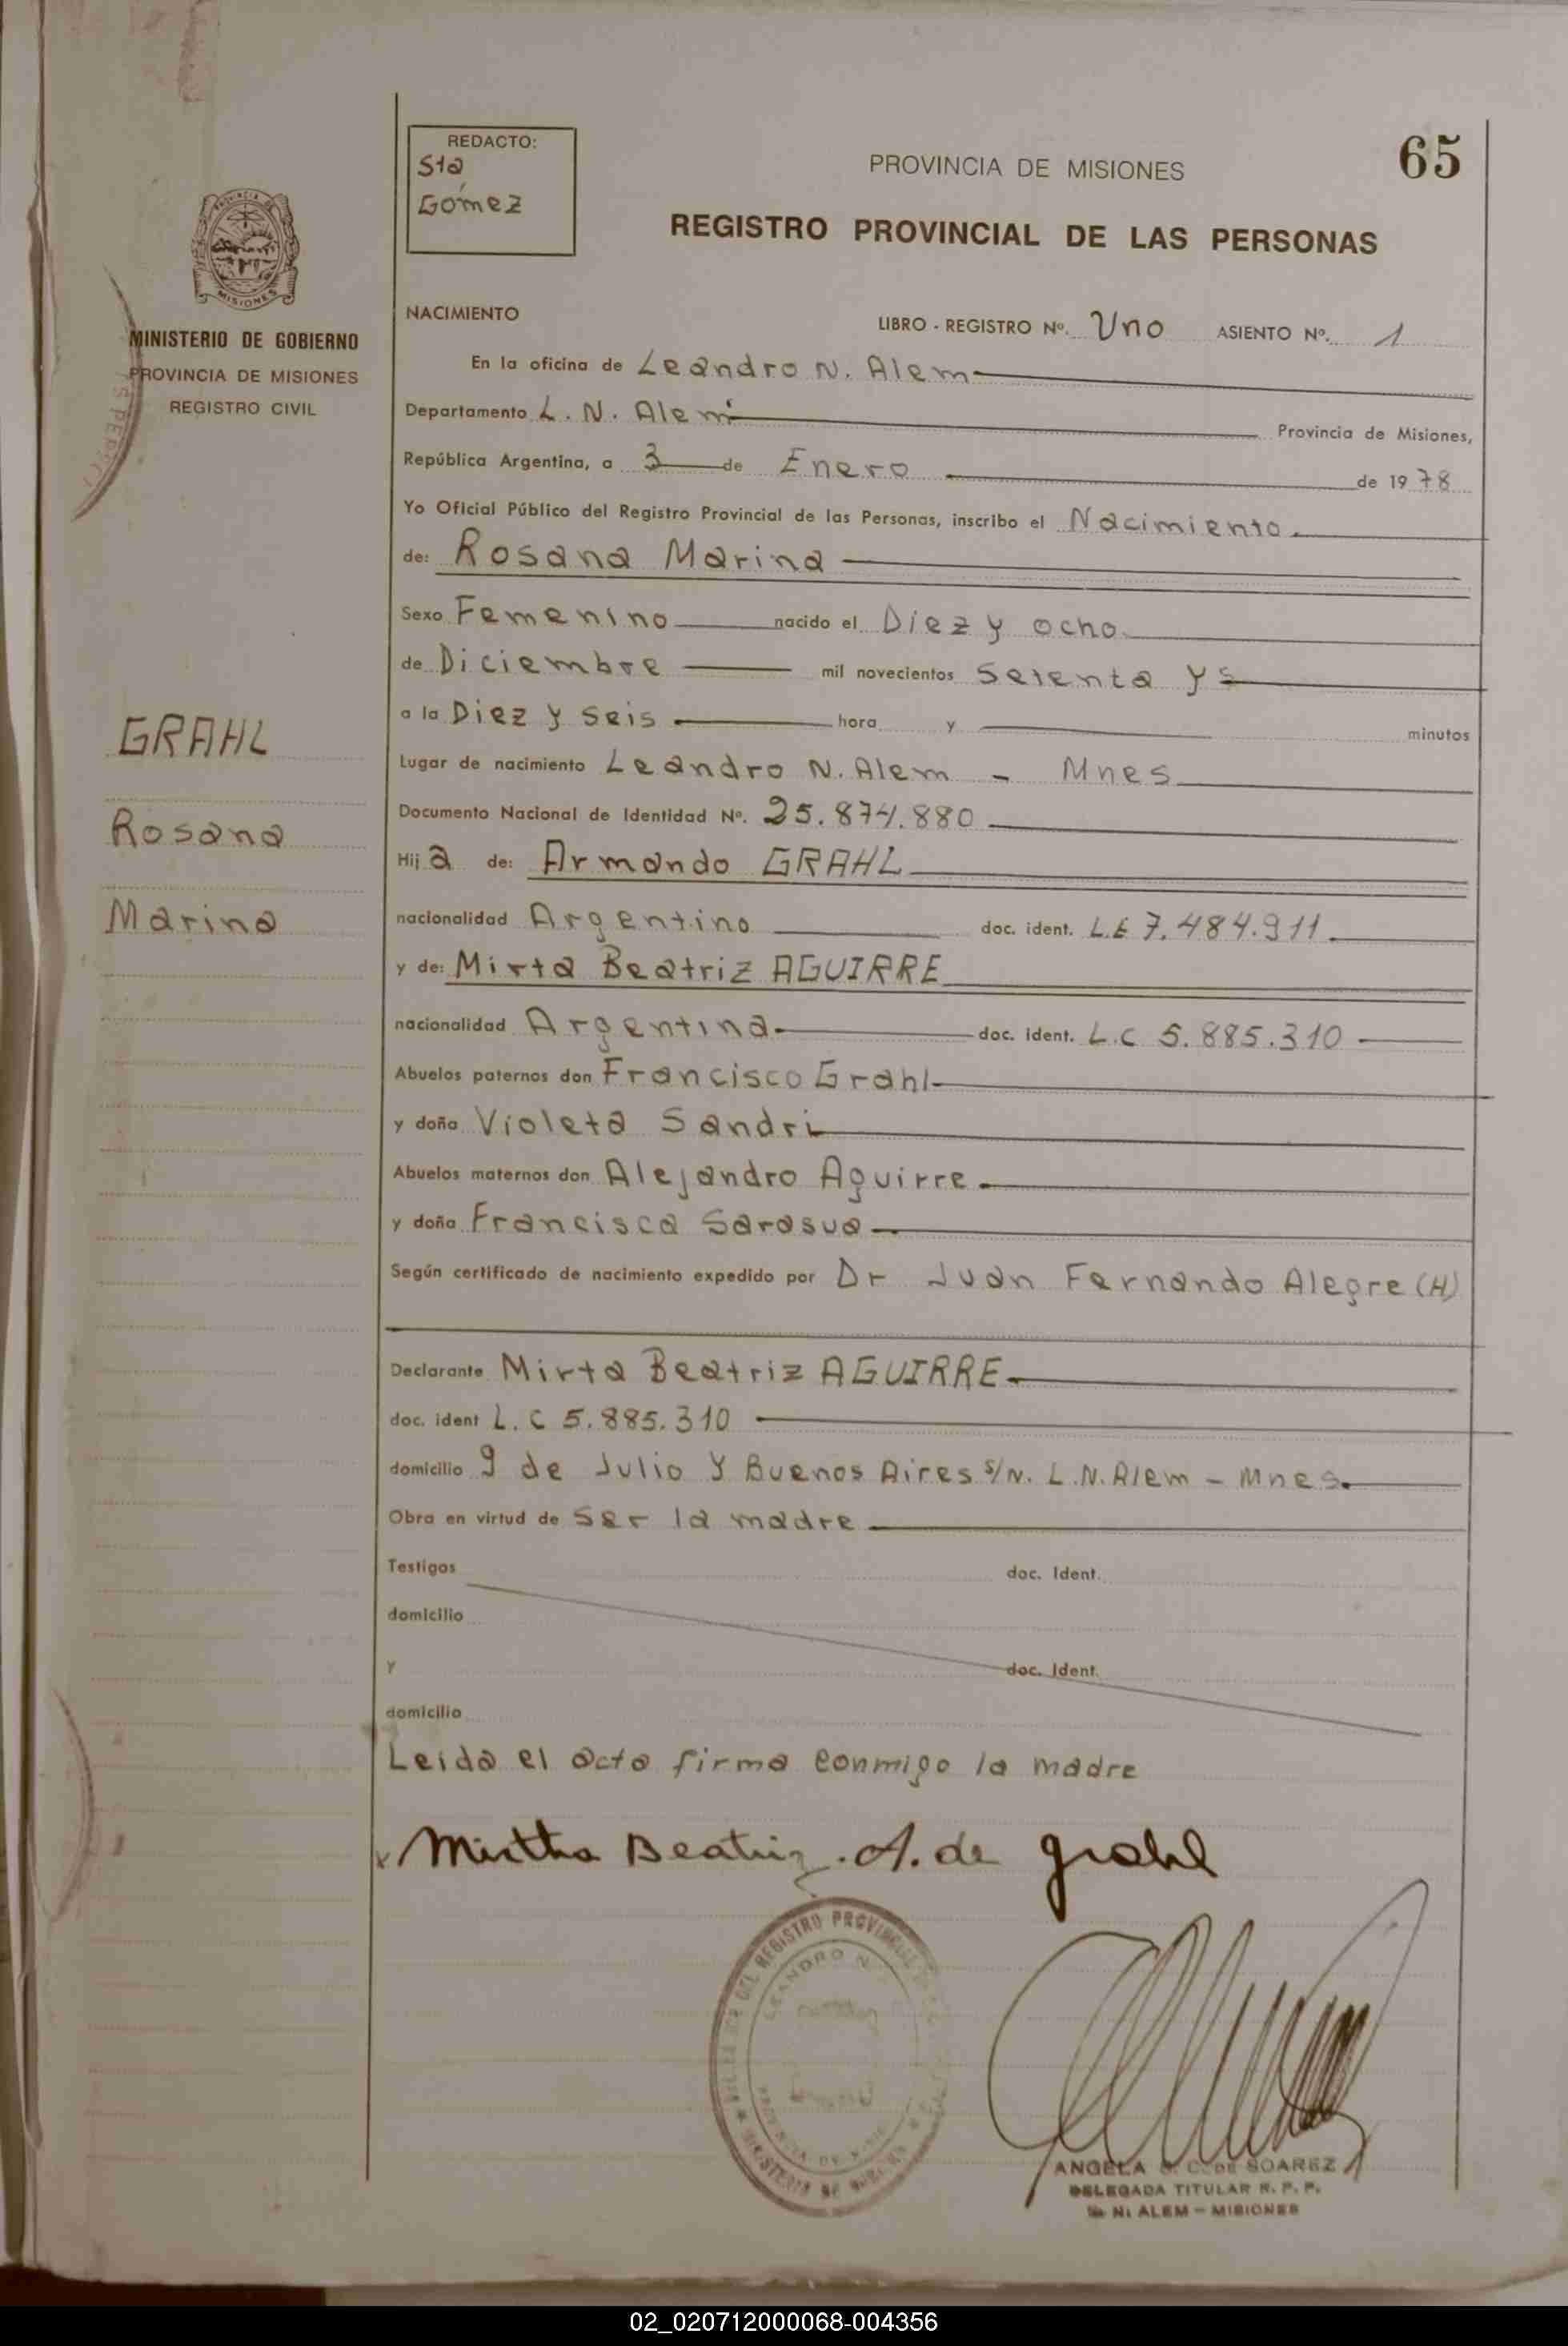 65
REDACTO:
Sta
Gómez
PROVINCIA DE MISIONES
REGISTRO PROVINCIAL DE LAS PERSONAS
MISIONES
MINISTERIO DE GOBIERNO
PROVINCIA DE MISIONES
REGISTRO CIVIL
GRAHL
Rosana
Marina
NACIMIENTO
LIBRO - REGISTRO Nº. Uno ASIENTO Nº. 1
En la oficina de Leandro N. Alem
Departamento L. N. Alem Provincia de Misiones,
República Argentina, a 3 de Enero de 1978
Yo Oficial Público del Registro Provincial de las Personas, inscribo el Nacimiento
de: Rosana Marina
Sexo Femenino nacido el Diez y ocho
de Diciembre mil novecientos Setenta y s
a la Diez y seis hora y minutos
Lugar de nacimiento Leandro N. Alem - Mnes
Documento Nacional de Identidad Nº. 25.874.880
Hija de: Armando GRAHL
nacionalidad Argentino doc. ident. L.E 7.484.911
y de: Mirta Beatriz AGUIRRE
nacionalidad Argentina doc. ident. L.C 5.885.310
Abuelos paternos don Francisco Grahl
y doña Violeta Sandri
Abuelos maternos don Alejandro Aguirre
y doña Francisca Sarasua
Según certificado de nacimiento expedido por Dr Juan Fernando Alegre (H)
Declarante Mirta Beatriz AGUIRRE
doc. ident L. C 5.885.310
domicilio 9 de Julio y Buenos Aires s/N. L.N. Alem - Mnes.
Obra en virtud de ser la madre
Testigos doc. Ident.
domicilio
y doc. Ident.
domicilio
Leida el acta firma conmigo la madre
x Mirtha Beatriz. A. de grahl
DEL REGISTRO PROVINCIAL
LEANDRO N.
PROVINCIA DE
MINISTERIO DE
ANGELA C. DE SOAREZ
DELEGADA TITULAR R. P. P.
N. ALEM - MISIONES
02_020712000068-004356